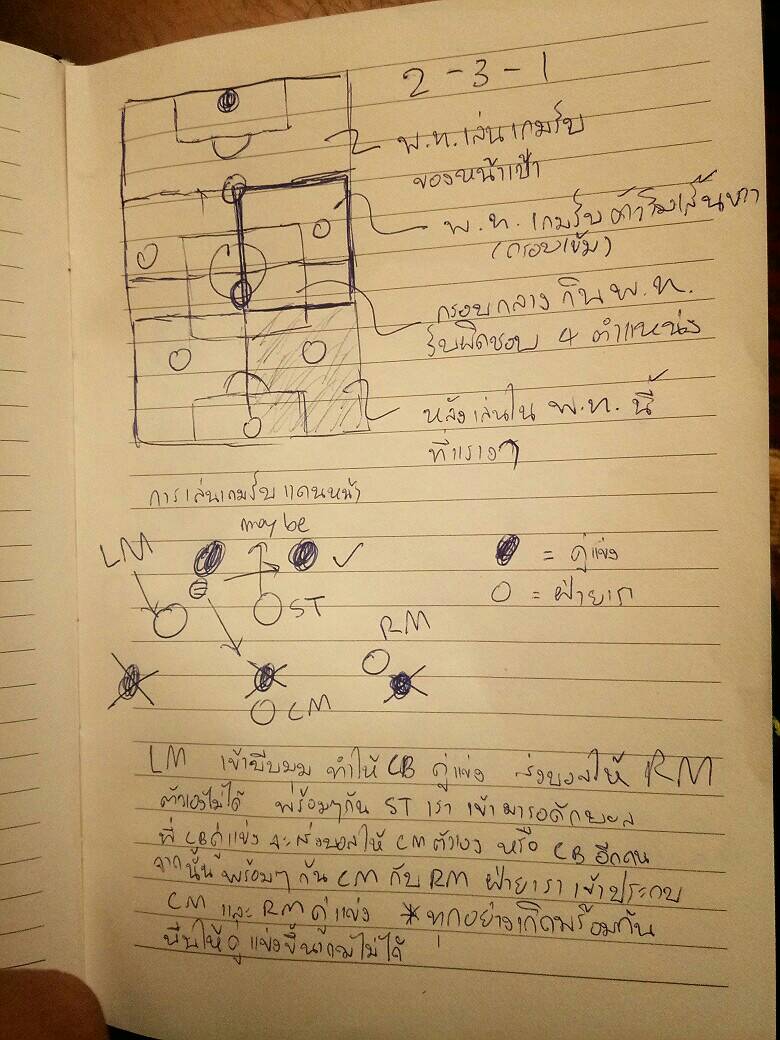 2-3-1
พ.ท. เล่นเกมรับ
ของหน้าเป้า
พ.ท. เกมรับ ตัวริมเส้นขวา
(กรอบเข้ม)
กรอบกลาง กิน พ.ท.
รับผิดชอบ 4 ตำแหน่ง
หลังเล่นใน พ.ท. นี้
ที่แรเงาๆ
การเล่นเกมรับ แดนหน้า
may be
LM
ST
= คู่แข่ง
= ฝ่ายเรา
RM
CM
LM เข้าบีบมุม ทำให้ CB คู่แข่ง ส่งบอลให้ RM
ตัวเองไม่ได้ พร้อมๆกัน ST เรา เข้ามารอดักบอล
ที่ CB คู่แข่ง จะส่งบอลให้ CM ตัวเอง หรือ CB อีกคน
จากนั้น พร้อมๆ กัน CM กับ RM ฝ่ายเรา เข้าประกบ
CM และ RM คู่แข่ง * ทุกอย่างเกิดพร้อมกัน
บีบให้คู่แข่งขึ้นเกมไม่ได้